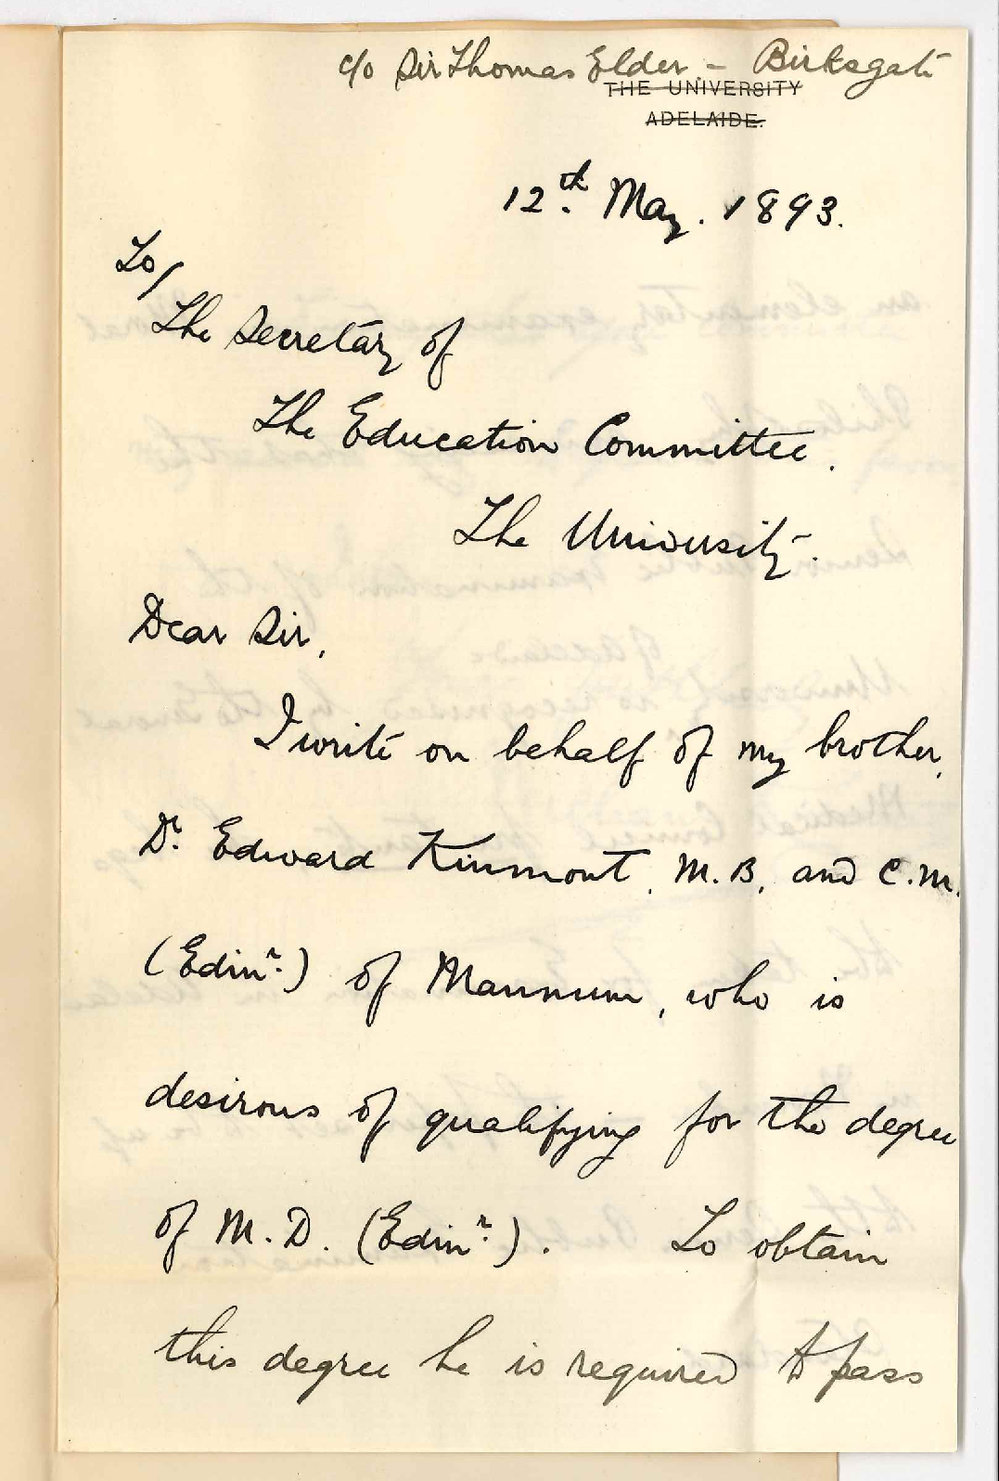 c/o Sir Thomas Elder - Birksgate
THE UNIVERSITY
ADELAIDE.
12th. May. 1893.
To/
The Secretary of
The Education Committee.
The University.
Dear Sir,
I write on behalf of my brother,
Dr. Edward Kinmont, M.B. and C.M.
(Edinr.) of Mannum, who is
desirous of qualifying for the degree
of M.D. (Edinr.). To obtain
this degree he is required to pass